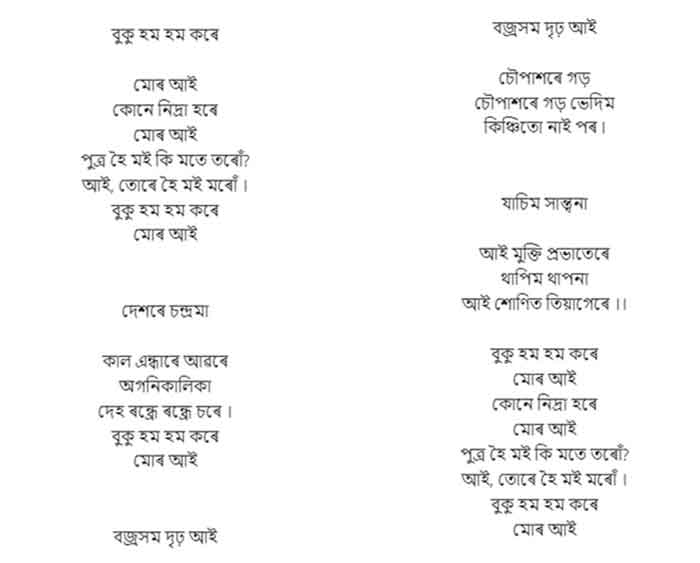 বুকু হম হম কৰে
মোৰ আই
কোনে নিদ্ৰা হৰে
মোৰ আই
পুত্ৰ হৈ মই কি মতে তৰোঁ?
আই, তোৰে হৈ মই মৰোঁ।
বুকু হম হম কৰে
মোৰ আই
দেশৰে চন্দ্ৰমা
কাল এন্ধাৰে আৱৰে
অগনিকালিকা
দেহ ৰন্ধ্ৰে ৰন্ধ্ৰে চৰে।
বুকু হম হম কৰে
মোৰ আই
বজ্ৰসম দৃঢ় আই
বজ্ৰসম দৃঢ় আই
চৌপাশৰে গড়
চৌপাশৰে গড় ভেদিম
কিঞ্চিতো নাই পৰ।
যাচিম সান্ত্বনা
আই মুক্তি প্ৰভাতেৰে
থাপিম থাপনা
আই শোণিত তিয়াগেৰে।।
বুকু হম হম কৰে
মোৰ আই
কোনে নিদ্ৰা হৰে
মোৰ আই
পুত্ৰ হৈ মই কি মতে তৰোঁ?
আই, তোৰে হৈ মই মৰোঁ।
বুকু হম হম কৰে
মোৰ আই